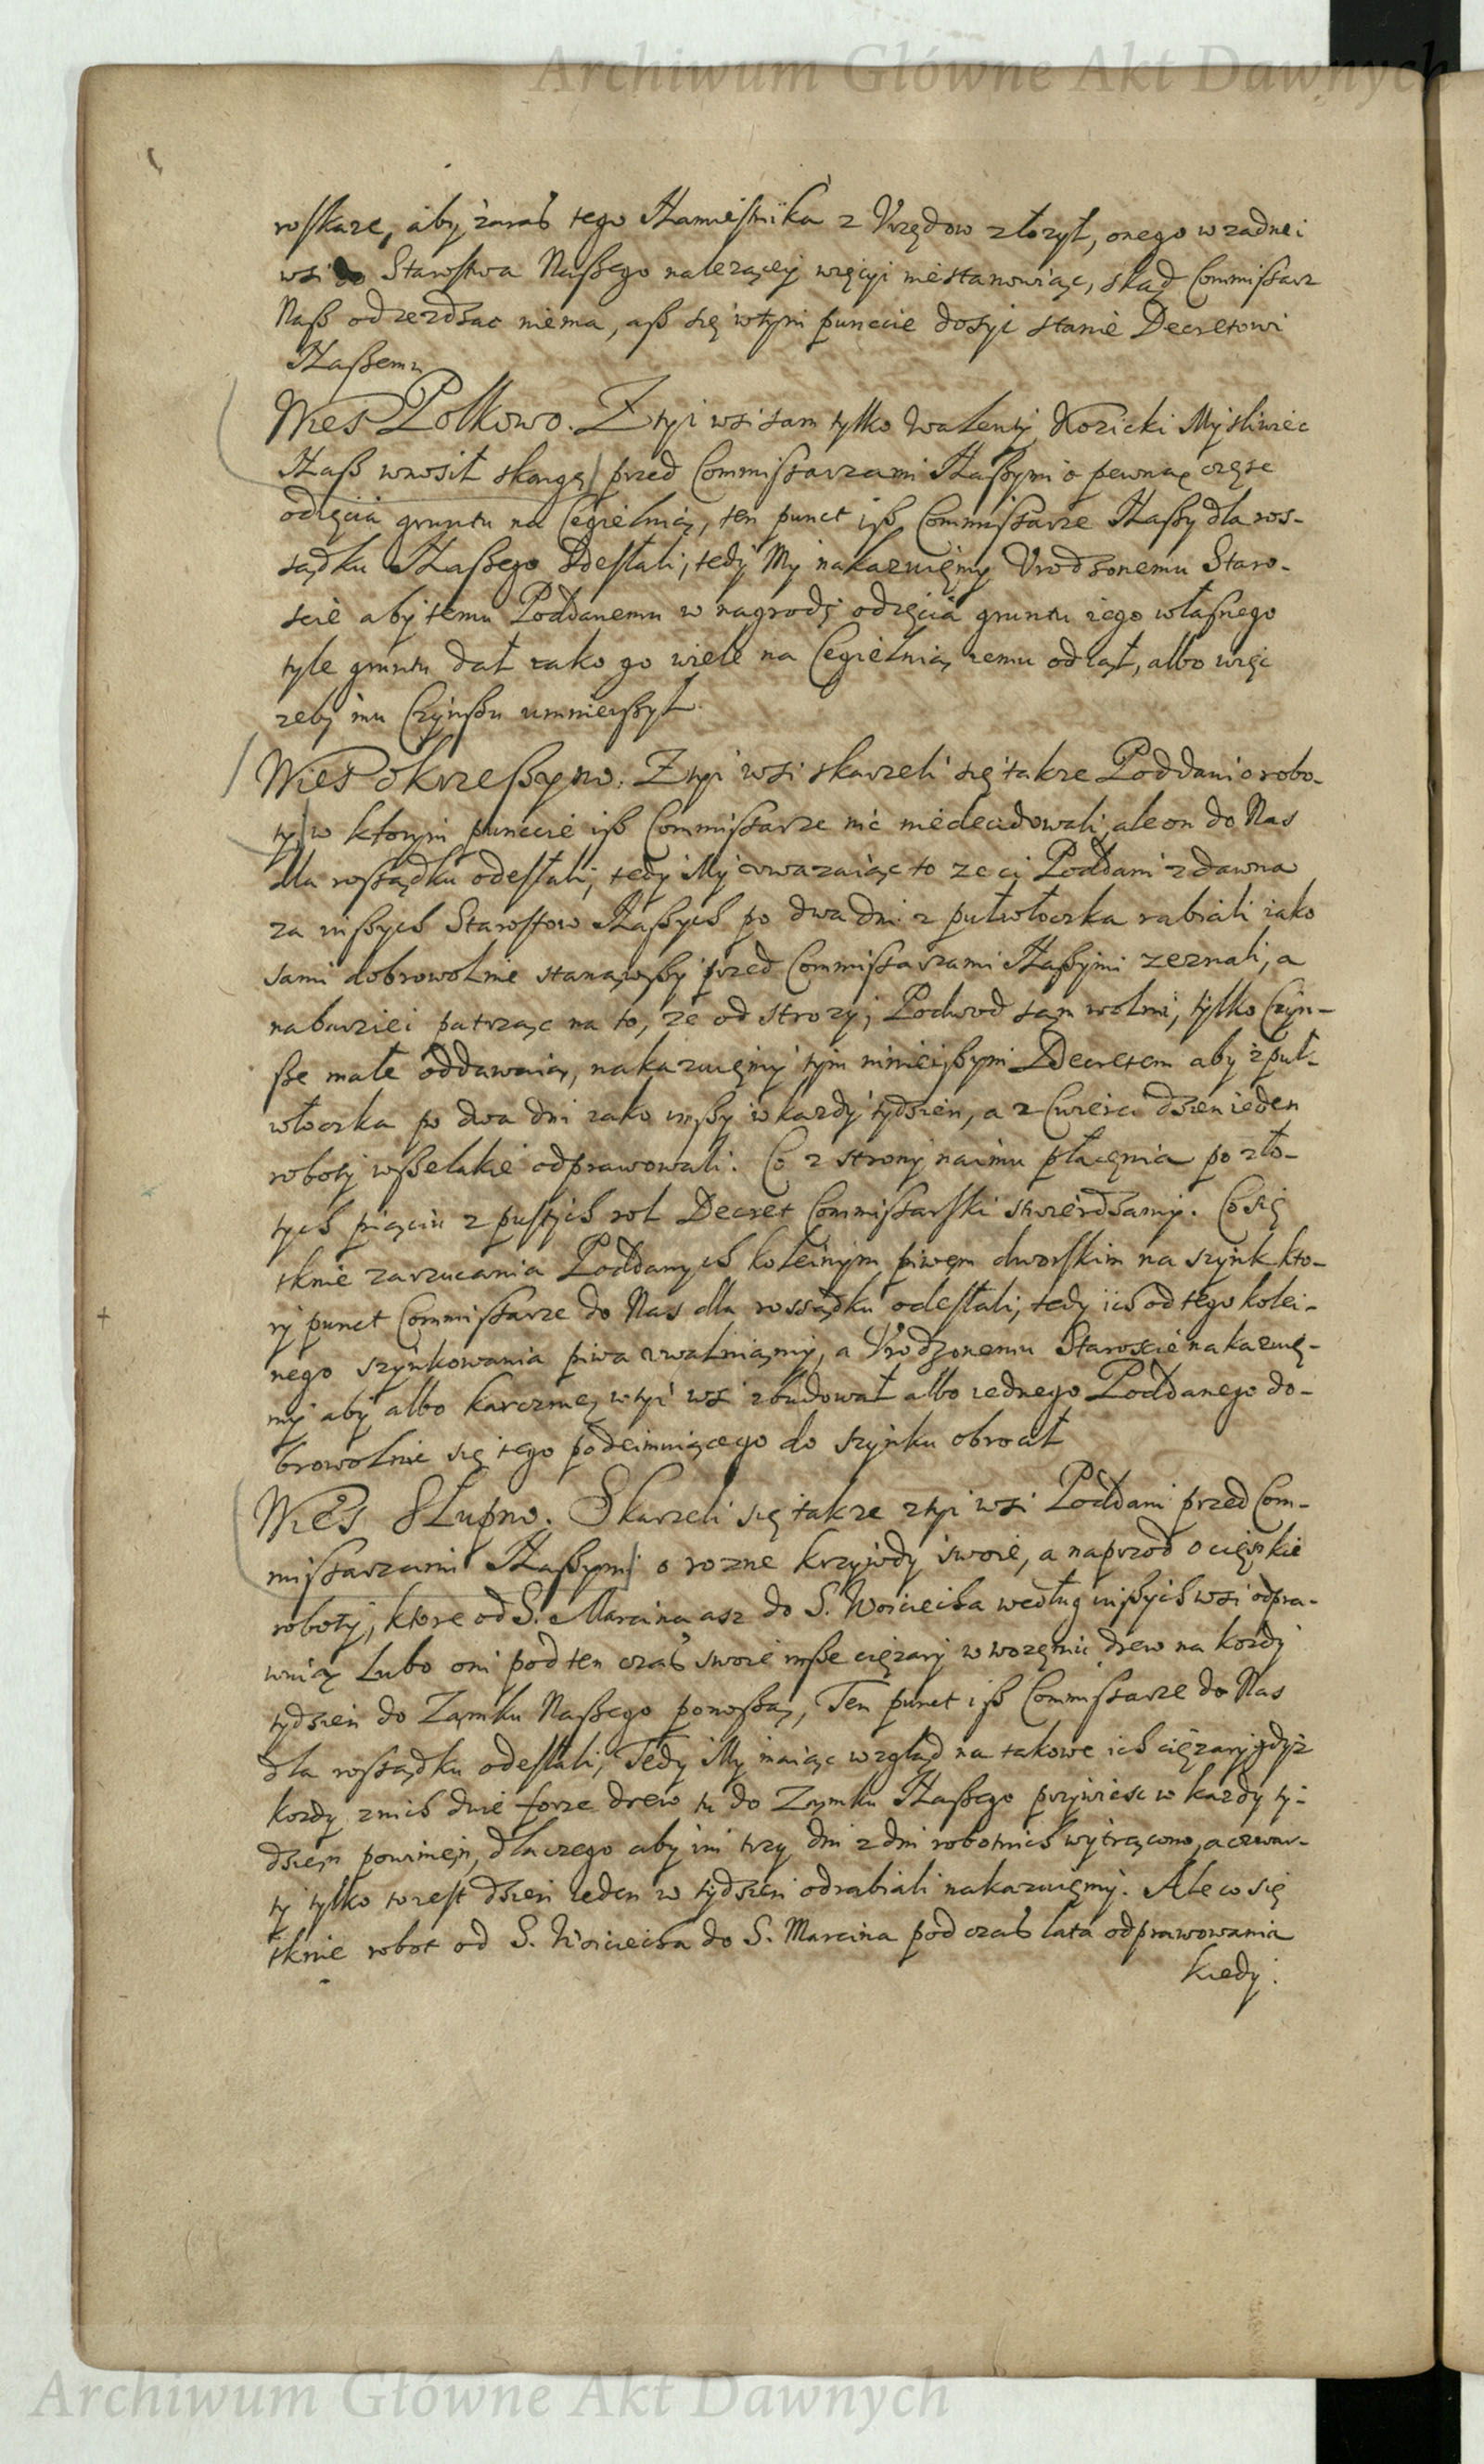 Archiwum Główne Akt Dawnych
rosskaze, aby zaraß tego Namiesnika z Vrzędow złozył, onego w zadnei
wsi do Starostwa Naßego nalezącey więcyi niestanowiąc, skąd Commissarz
Naß odiezdzac niema, aß się wtym puncie dosyc stanie Decretowi
Naßemu
Wies Polkowo. Z tyi wsi sam tylko Walenty Kozicki Mysliwiec
Naß wnosił skargę przed Commissarzami Naßymi o pewną częsc
odięcia gruntu na Cegielnią, ten punct iß Commissarze Naßy dla ros-
sądku Naßego Odesłali, tedy My nakazuięmy Vrodzonemu Staro-
scie aby temu Poddanemu w nagrodę odięcia gruntu iego własnego
tyle gruntu dał iako go wiele na Cegielnią iemu odiął, albo więc
zeby mu Czynßu umnieyßył
Wies Okreßyno. Z tyi wsi skarzeli się takze Poddani o robo-
ty w ktorym puncie iß Commissarze nic niedecidowali, ale on do Nas
dla rossądku odesłali, tedy My uwazaiąc to ze ci Poddani zdawna
za inßych Starostow Naßych po dwa dni z pułwłoczka rabiali iako
sami dobrowolnie stanąwßy przed Commissarzami Naßymi zeznali, a
nabarziei patrząc na to, ze od strozy, Podwod sąm wolni, tylko Czyn-
ße małe oddawaią, nakazuięmy tym ninieißym Decretem aby z puł-
włoczka po dwa dni iako inßy w kazdy tydzien, a z Cwierci dzien ieden
roboty wßelakie odprawowali. Co z strony naimu płacęnia po zło-
tych pięciu z pustych rol Decret Commissarski stwierdzamy. Co się
tknie zarzucania Poddanych koleinym piwem dworskim na szynk kto-
ry punct Commissarze do Nas dla rossądku odesłali, tedy ich od tego kolei-
nego szynkowania piwa uwalniamy, a Vrodzonemu Staroscie nakazuię-
my aby albo karczmę w tyi wsi zbudował albo iednego Poddanego do-
browolnie się tego podeimuiącego do szynku obrocił
Wies Słupno. Skarzeli się takze z tyi wsi Poddani przed Com-
missarzami Naßymi o rozne krzywdy swoie, a naprzod o cięzkie
roboty, ktore od S. Marcina asz do S. Woiciecha według inßych wsi odpra-
wuią Lubo oni pod ten czaß swoie inße cięzary w wozęniu drew na kozdy
tydzien do Zamku Naßego ponoßą, Ten punct iß Commissarze do Nas
dla rossądku odesłali, Tedy My maiąc wzgląd na takowe ich cięzary gdyz
kozdy znich dwie forze drew tu do Zamku Naßego przywiesc w kazdy ty-
dzięn powinięn, dlaczego aby im trzy dni z dni robotnich wytrącono, a czwar-
ty tylko to iest dzien ieden w tydzien odrabiali nakazuięmy. Ale co się
tknie robot od S. Woiciecha do S. Marcina pod czaß lata odprawowania
kiedy.
Archiwum Główne Akt Dawnych